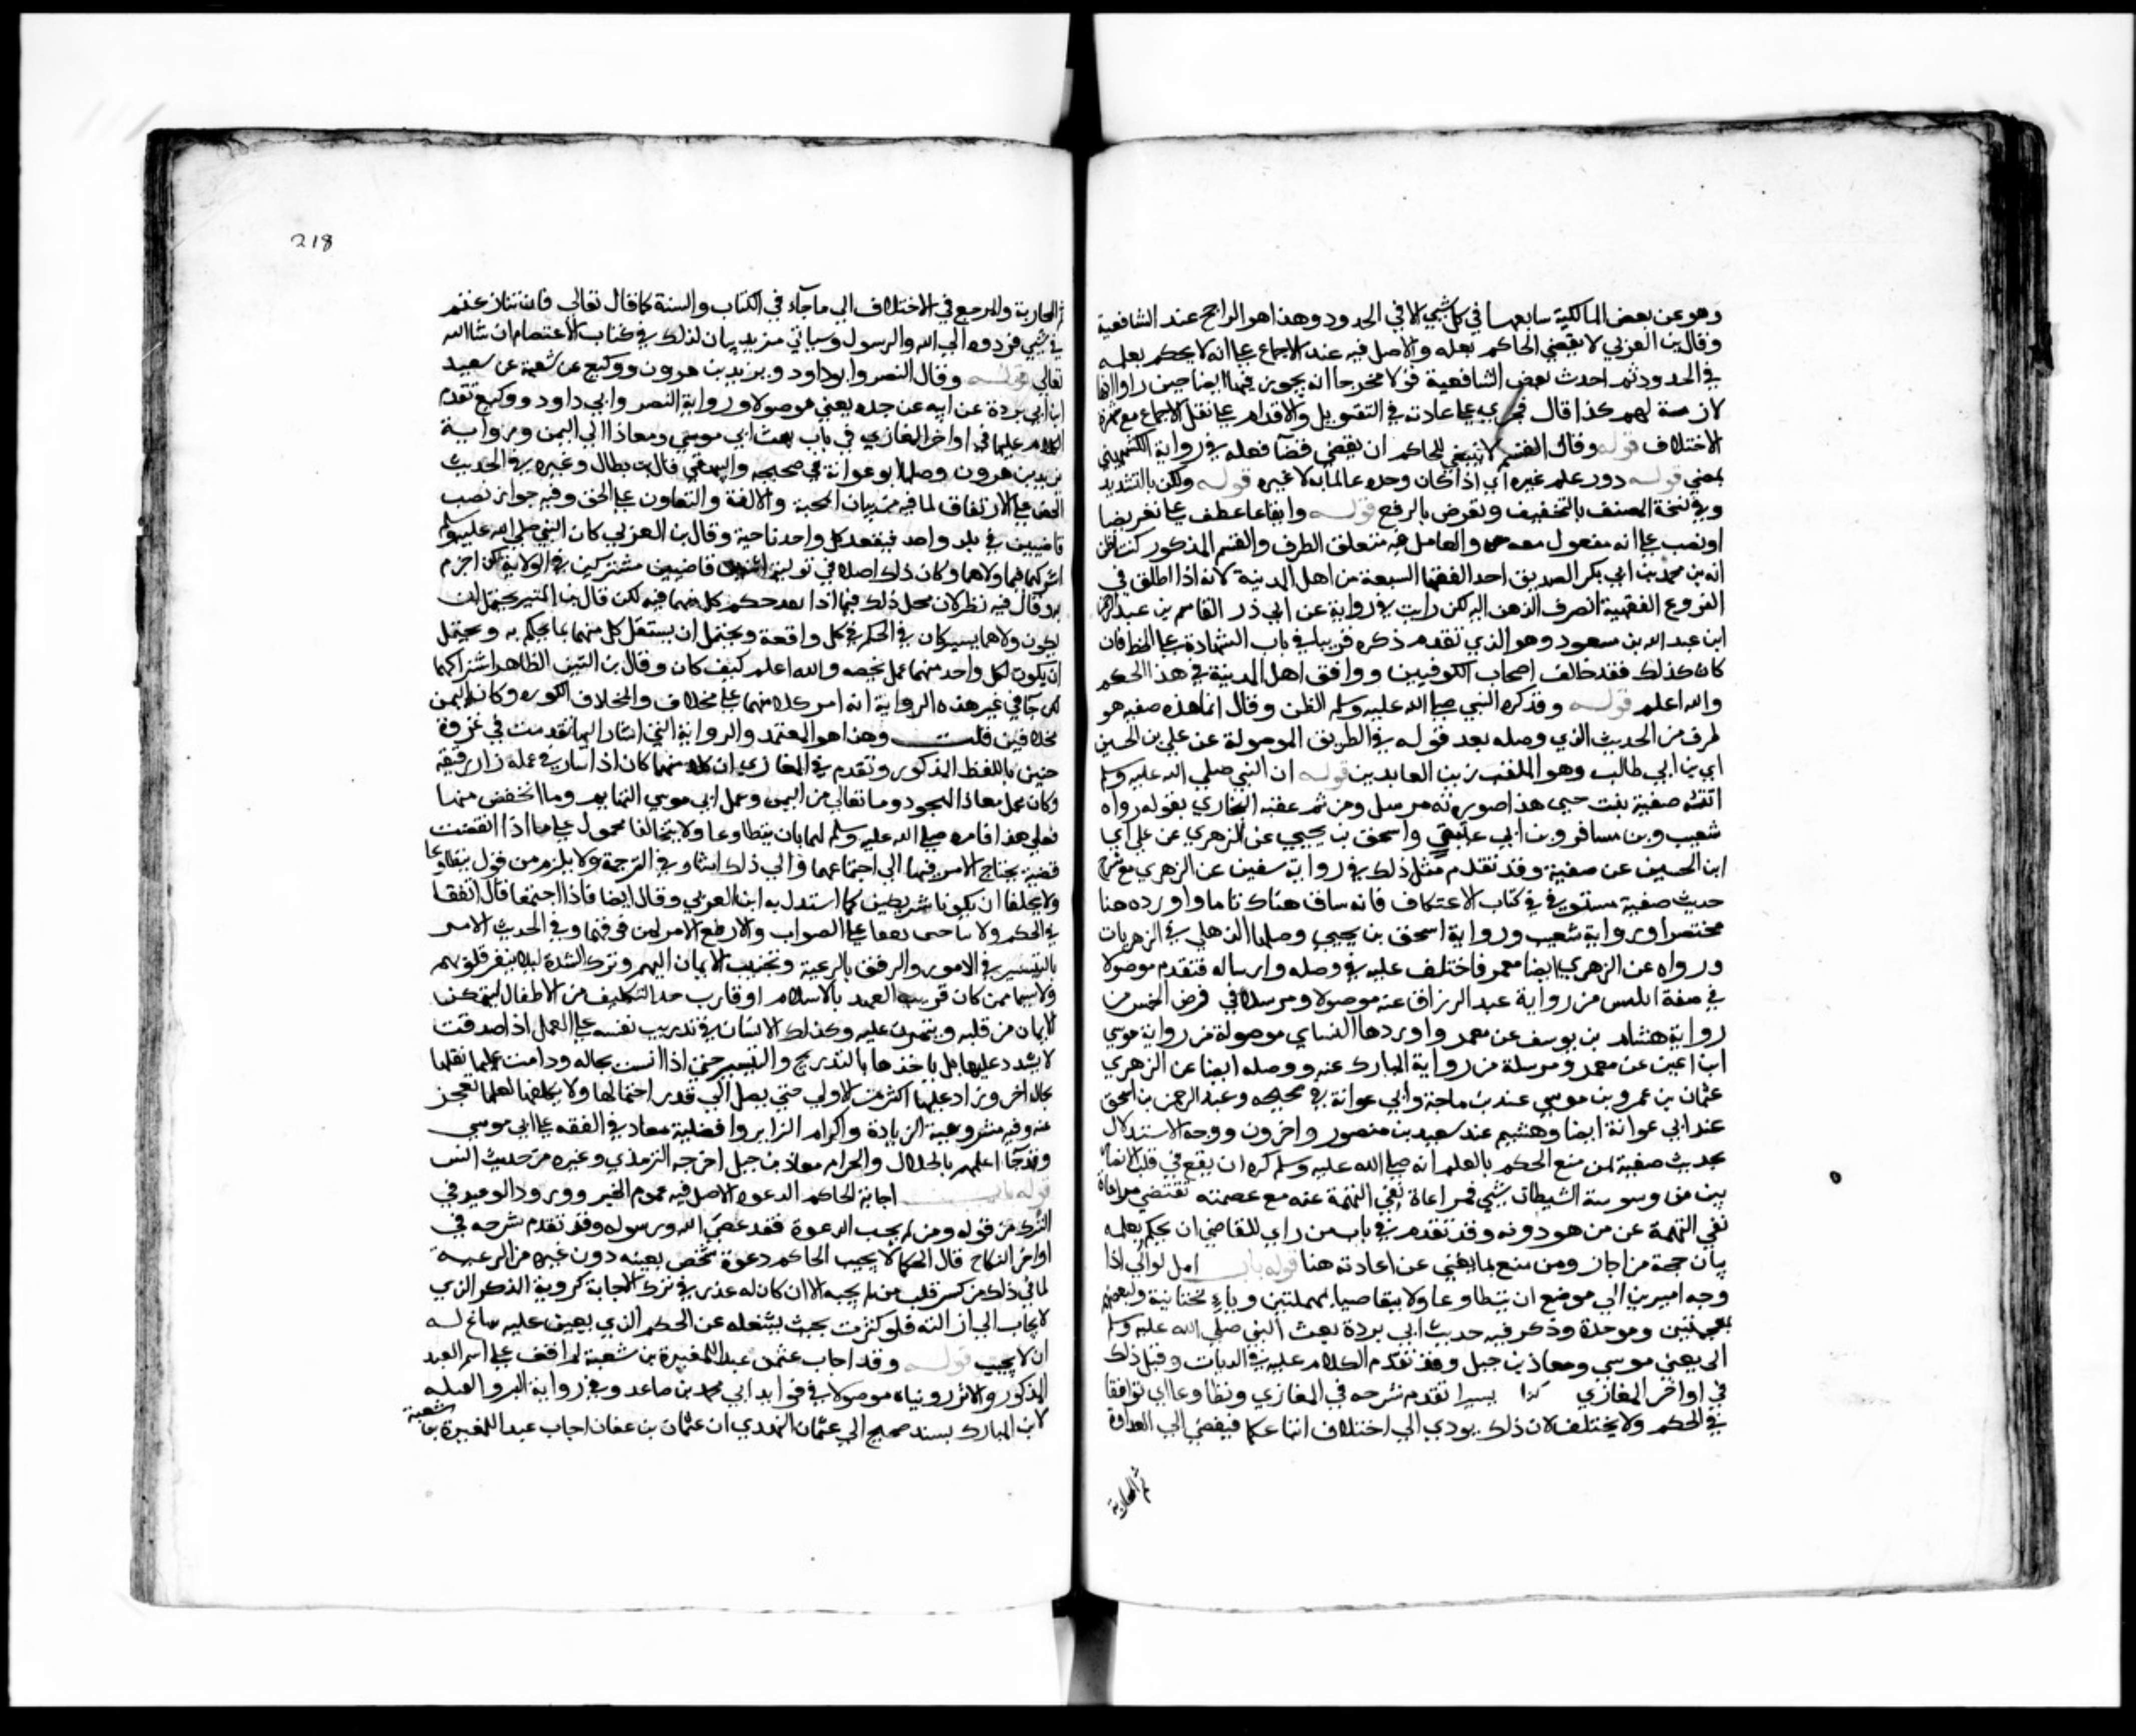 وهو عن بعض المالكية سابعها في كل شي الا في الحدود وهذا هو الراجح عند الشافعية
وقال بن العربي لا يقضي الحاكم بعلمه والاصل فيه عند الاجماع على انه لا يحكم بعلمه
في الحدود ثم احدث بعض الشافعية قولا مخرجا انه يجوز فيها ايضا حين راوا انها
لازمة لهم كذا قال فجري على عادته في التهويل والاقدام على نقل الاجماع مع شهرة
الاختلاف قوله وقال القسم لا ينبغي للحاكم ان يقضي قضآ فعله في رواية الكشميهني
يمضي قوله دون علم غيره اي اذا كان وحده عالما به لا غيره قوله ولكن بالتشديد
وفي نسخة الصنف بالتخفيف وتعرض بالرفع قوله وايقاعا عطف على تعرضا
او نصب على انه مفعول معه والعامل فيه متعلق الظرف والقسم المذكور كنت اظن
انه بن محمد بن ابي بكر الصديق احد الفقها السبعة من اهل المدينة لانه اذا اطلق في
الفروع الفقهية انصرف الذهن اليه لكن رايت في رواية عن ابي ذر القاسم بن عبد الرحمن
ابن عبد الله بن مسعود وهو الذي تقدم ذكره قريبا في باب الشهادة على الخط فان
كان كذلك فقد خالف اصحاب الكوفيين ووافق اهل المدينة في هذا الحكم
والله اعلم قوله وقد كره النبي صلى الله عليه وسلم الظن وقال انما هذه صفيه هو
طرف من الحديث الذي وصله بعد قوله في الطريق الموصولة عن علي بن الحسين
اي بن ابي طالب وهو الملقب زين العابدين قوله ان النبي صلى الله عليه وسلم
اتته صفية بنت حيي هذا صورته مرسل ومن ثم عقبه البخاري بقوله رواه
شعيب وبن مسافر وبن ابي عتيق واسحق بن يحيي عن الزهري عن علي اي
ابن الحسين عن صفية وقد تقدم مثل ذلك في رواية سفين عن الزهري مع شرح
حديث صفية مستوفي في كتاب الاعتكاف فانه ساقه هناك تاما واورده هنا
مختصرا ورواية شعيب ورواية اسحق بن يحيي وصلها الذهلي في الزهريات
ورواه عن الزهري ايضا معمر فاختلف عليه في وصله وارساله فتقدم موصولا
في صفة ابليس من رواية عبد الرزاق عنه موصولا ومرسلا في فرض الخمس من
رواية هشام بن يوسف عن معمر واوردها النساي موصولة من رواية موسي
ابن اعين عن معمر ومرسلة من رواية المبارك عنه ووصله ايضا عن الزهري
عثمان بن عمرو بن موسي عند بن ماجة وابي عوانة في صحيحه وعبد الرحمن بن اسحق
عند ابي عوانة ايضا وهشيم عند سعيد بن منصور واخرون ووجه الاستدلال
بحديث صفية لمن منع الحكم بالعلم انه صلى الله عليه وسلم كره ان يقع في قلب الانصار
يين من وسوسة الشيطان شي فمراعاة نفي التهمة عنه مع عصمته تقتضي مراعاة
نفي التهمة عن من هو دونه وقد تقدم في باب من راي للقاضي ان يحكم بعلمه
بيان حجة من اجاز ومن منع بما يغني عن اعادته هنا قوله باب امر الوالي اذا
وجه اميرين الي موضع ان يتطاوعا ولا يتعاصيا بمهملتين ويآء تحتانية ولبعضهم
بمعجمتين وموحدة وذكر فيه حديث ابي بردة بعث النبي صلى الله عليه وسلم
ابي يعني موسي ومعاذ بن جبل وقد تقدم الكلام عليه في الديات وقبل ذلك
في اواخر المغازي كذا يسرا تقدم شرحه في المغازي وتطاوعا اي توافقا
في الحكم ولا يختلف لان ذلك يودي الي اختلاف اتباعكما فيفضي الي العداوة
ثم المحاربة
218
ثم المحاربة والمرجع في الاختلاف الي ما جآء في الكتاب والسنة كما قال تعالي فان تنازعتم
في شي فردوه الي الله والرسول وسياتي مزيد بيان لذلك في كتاب الاعتصام ان شا الله
تعالي قوله وقال النضر وابو داود ويزيد بن هرون ووكيع عن شعبة عن سعيد
ابن ابي بردة عن ابيه عن جده يعني موصولا ورواية النضر وابي داود ووكيع تقدم
الكلام عليها في اواخر المغازي في باب بعث ابي موسي ومعاذ الي اليمن ورواية
يزيد بن هرون وصلها ابو عوانة في صحيحه والبيهقي قال بن بطال وغيره في الحديث
الحض على الارتفاق لما فيه من بيان المحبة والالفة والتعاون على الحق وفيه جواز نصب
قاضيين في بلد واحد فيقعد كل واحد ناحية وقال بن العربي كان النبي صلى الله عليه وسلم
اشركهما فيما ولاهما وكان ذلك اصلا في تولية اثنين قاضيين مشتركين في الولاية كذا جزم
به وقال فيه نظر لان محل ذلك فيما اذا نفذ حكم كل منهما فيه لكن قال بن المنير يحتمل ان
يكون ولاهما يشتركان في الحكم في كل واقعة ويحتمل ان يستقل كل منهما بما يحكم به ويحتمل
ان يكون لكل واحد منهما عمل يخصه والله اعلم كيف كان وقال بن التين الظاهر اشتراكهما
لكن جآ في غير هذه الرواية انه امر كلا منهما على مخلاف والمخلاف الكوره وكان اليمن
مخلافين قلت وهذا هو المعتمد والرواية التي اشار اليها تقدمت في غزوة
حنين باللفظ المذكور وتقدم في المغازي ان كلا منهما كان اذا سار في عمله زار رفيقه
وكان عمل معاذ النجود وما تعالي من اليمن وعمل ابي موسي التهايم وما انخفض منها
فعلي هذا فامره صلى الله عليه وسلم لهما بان يتطاوعا ولا يتخالفا محمول على ما اذا اتفقت
قضية يحتاج الامر فيها الي اجتماعهما والي ذلك اشار في الترجمة ولا يلزم من قوله يتطاوعا
ولا يختلفا ان يكونا شريكين كما استدل به ابن العربي وقال ايضا فاذا اجتمعا قال اتفقا
في الحكم ولا على الصواب والا رفع الامر لمن فوقهما وفي الحديث الامر
بالتيسير في الامور والرفق بالرعية وتحبيب الايمان اليهم وترك الشدة ليلا ينفر قلوبهم
ولا سيما ممن كان قريب العهد بالاسلام او قارب حد التكليف من الاطفال ليتمكن
الايمان من قلبه ويتمرن عليه وكذلك الانسان في تدريب نفسه على العمل اذا صدقت
لا يشدد عليها بل ياخذها بالتدريج والتيسير حتي اذا انست بحاله ودامت عليها نقلها
بحال اخر وزاد عليها اكثر من الاولي حتي يصل الي قدر احتمالها ولا يكلفها لعلها تعجز
عنه وفيه مشروعية الزيارة واكرام الزاير وافضلية معاذ في الفقه على ابي موسي
وقد جآ اعلمهم بالحلال والحرام معاذ بن جبل اخرجه الترمذي وغيره من حديث انس
قوله باب اجابة الحاكم الدعوه الاصل فيه عموم الخبر وورود الوعيد في
الترك من قوله ومن لم يجب الدعوة فقد عصي الله ورسوله وقد تقدم شرحه في
اواخر النكاح قال الحكما لا يجيب الحاكم دعوة شخص بعينه دون غيره من الرعية
لما في ذلك من كسر قلب من لم يجبه الا ان كان له عذر في ترك الاجابة كروية المنكر الذي
لا يجاب الي ازالته فلو كثرت بحيث يشغله عن الحكم الذي يعين عليه ساغ له
ان لا يجيب قوله وقد اجاب عثمن عبدا للمغيرة بن شعبة لم اقف على اسم العبد
المذكور والاثر رويناه موصولا في فوايد ابي محمد بن صاعد وفي رواية البر والصلة
لابن المبارك بسند صحيح الي عثمان النهدي ان عثمان بن عفان اجاب عبدا للمغيرة بن شعبة